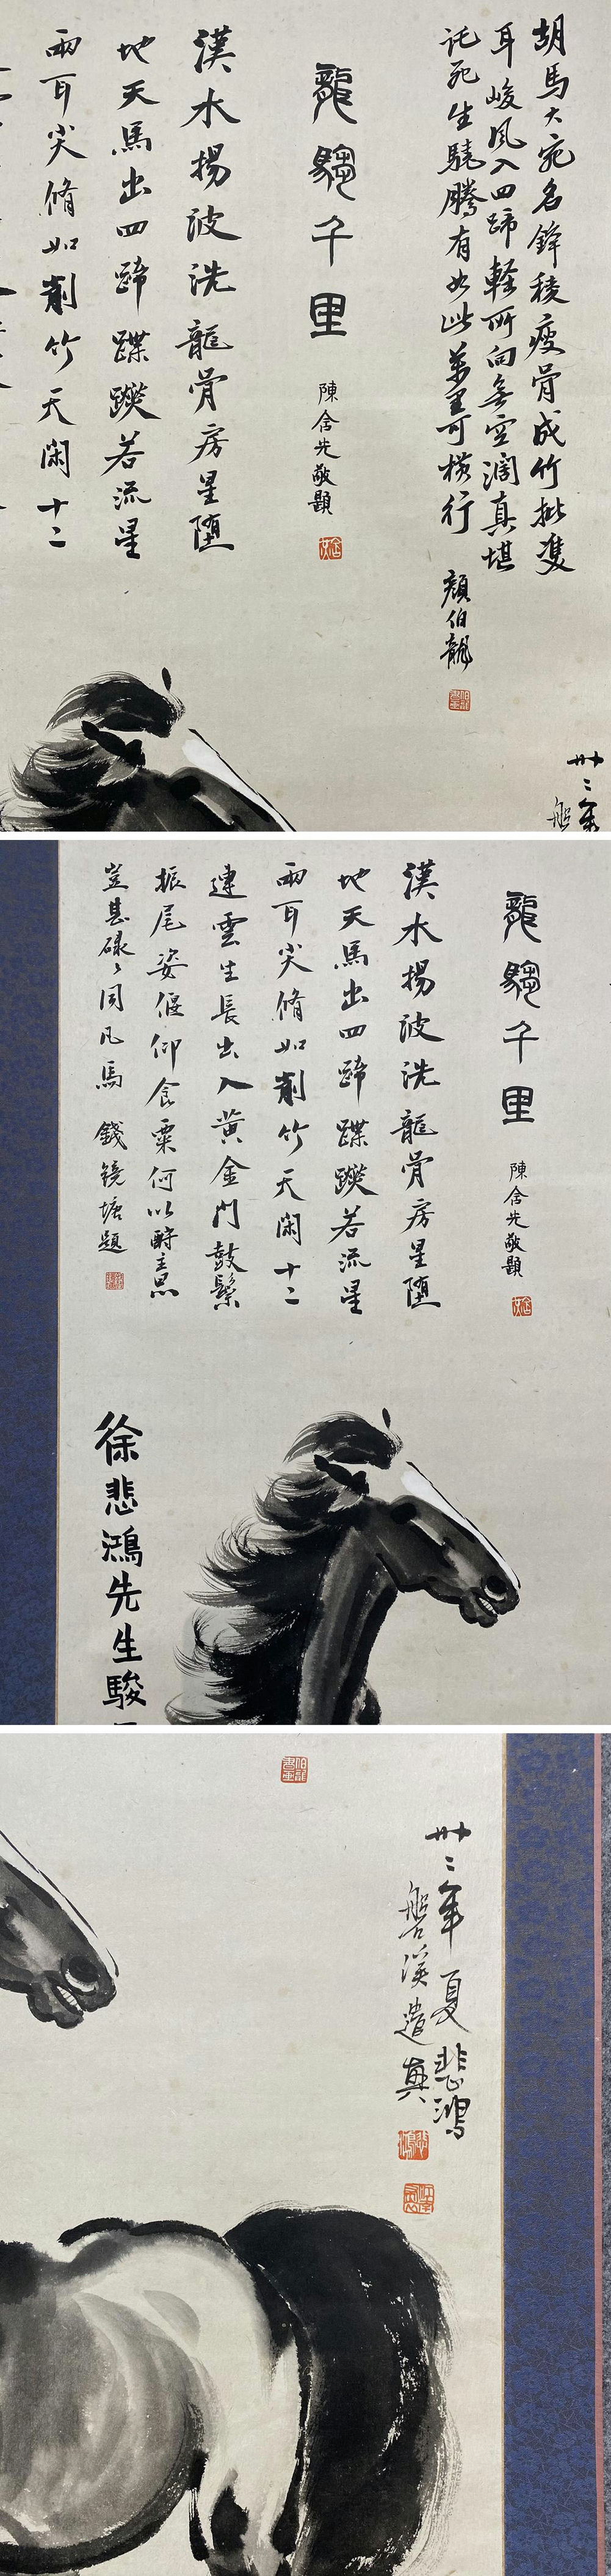 胡馬大宛名鋒稜瘦骨成竹批雙
耳峻風入四蹄輕所向無空濶真堪
託死生驍騰有如此萬里可橫行
顏伯龍
龍騶千里
陳含先敬題
漢水揚波洗龍骨房星墮
地天馬出四蹄蹀躞若流星
兩耳尖脩如削竹天閑十二
卅二年
龍騶千里
陳含先敬題
漢水揚波洗龍骨房星墮
地天馬出四蹄蹀躞若流星
兩耳尖脩如削竹天閑十二
連雲生長出入黃金門鼓鬃
振尾姿偃仰食粟何以酬主恩
豈甚碌々同凡馬 錢鏡塘題
徐悲鴻先生駿
卅二年夏悲鴻
磐溪遣興